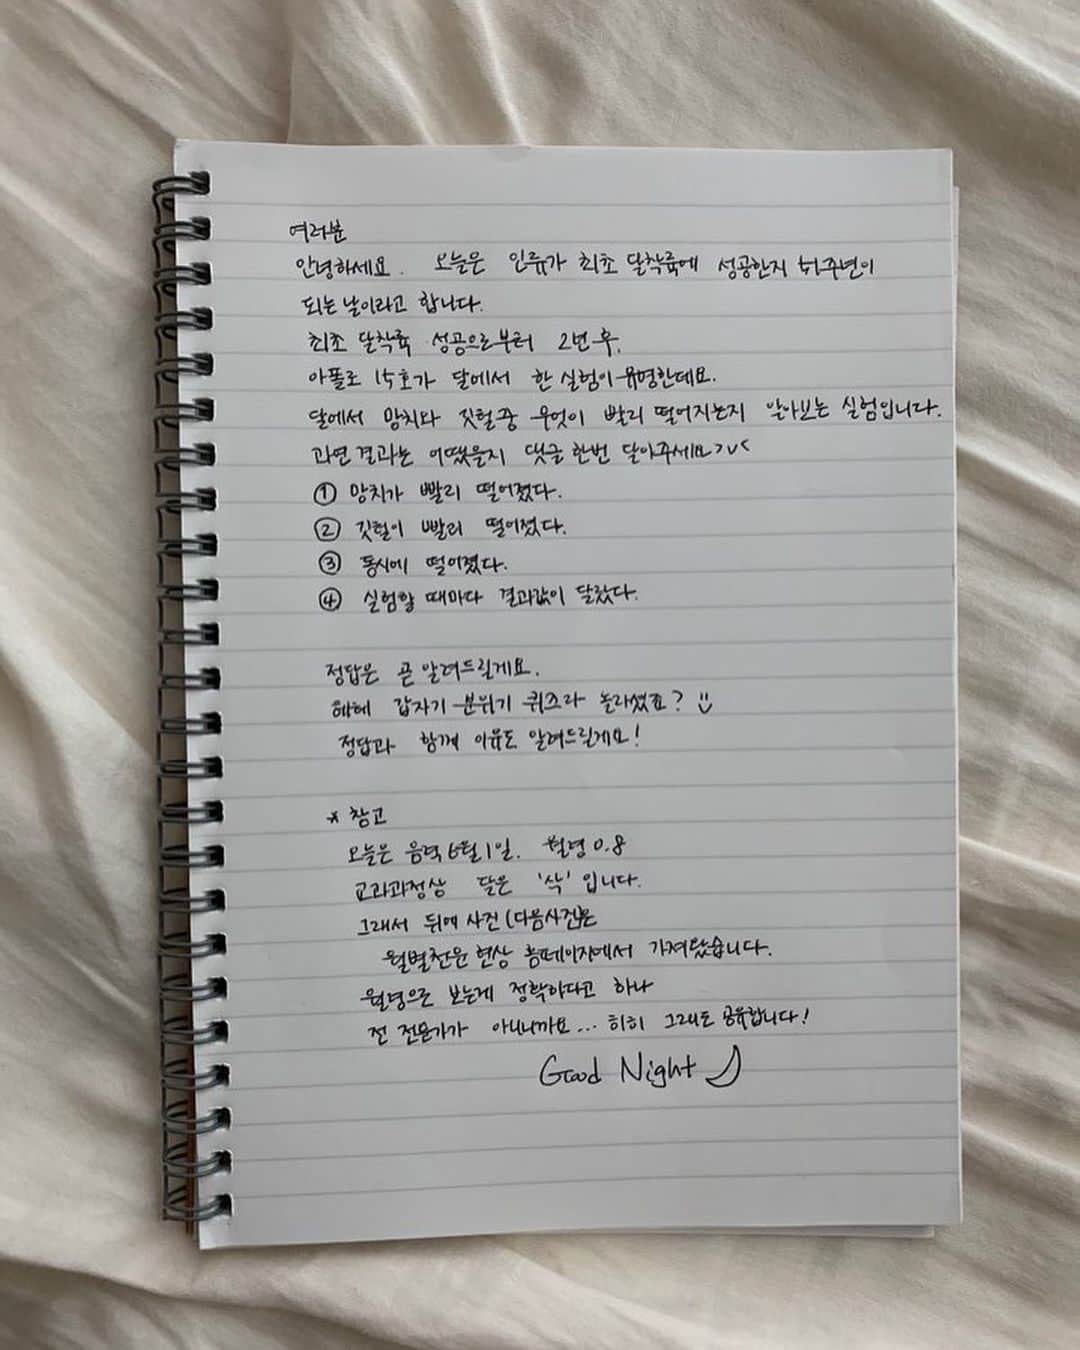 여러분
안녕하세요. 오늘은 인류가 최초 달착륙에 성공한지 51주년이
되는 날이라고 합니다.
최초 달착륙 성공으로부터 2년 후,
아폴로 15호가 달에서 한 실험이 유명한데요.
달에서 망치와 깃털 중 무엇이 빨리 떨어지는지 알아보는 실험입니다.
과연 결과는 어땠을지 댓글 한번 달아주세요>v<
① 망치가 빨리 떨어졌다.
② 깃털이 빨리 떨어졌다.
③ 동시에 떨어졌다.
④ 실험할 때마다 결과값이 달랐다.
정답은 곧 알려드릴게요.
헤헤 갑자기 분위기 퀴즈라 놀라셨죠? :)
정답과 함께 이유도 알려드릴게요!
* 참고
오늘은 음력 6월 1일. 월령 0.8
교과과정상 달은 '삭' 입니다.
그래서 뒤에 사진 (다음사진)은
월별천문현상 홈페이지에서 가져왔습니다.
월령으로 보는게 정확하다고 하나
전 전문가가 아니니까요... 히히 그래도 공유합니다!
Good Night